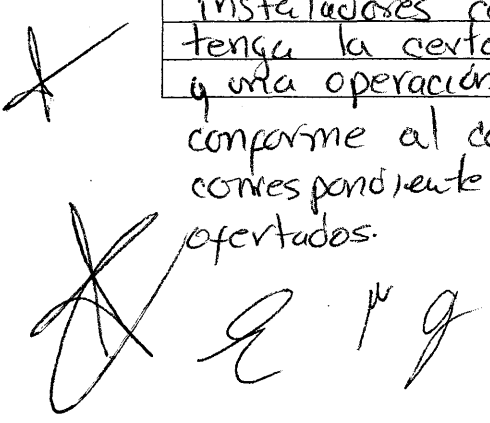 instaladores
tenga la
y una operación
conforme al
correspondiente
ofertados.